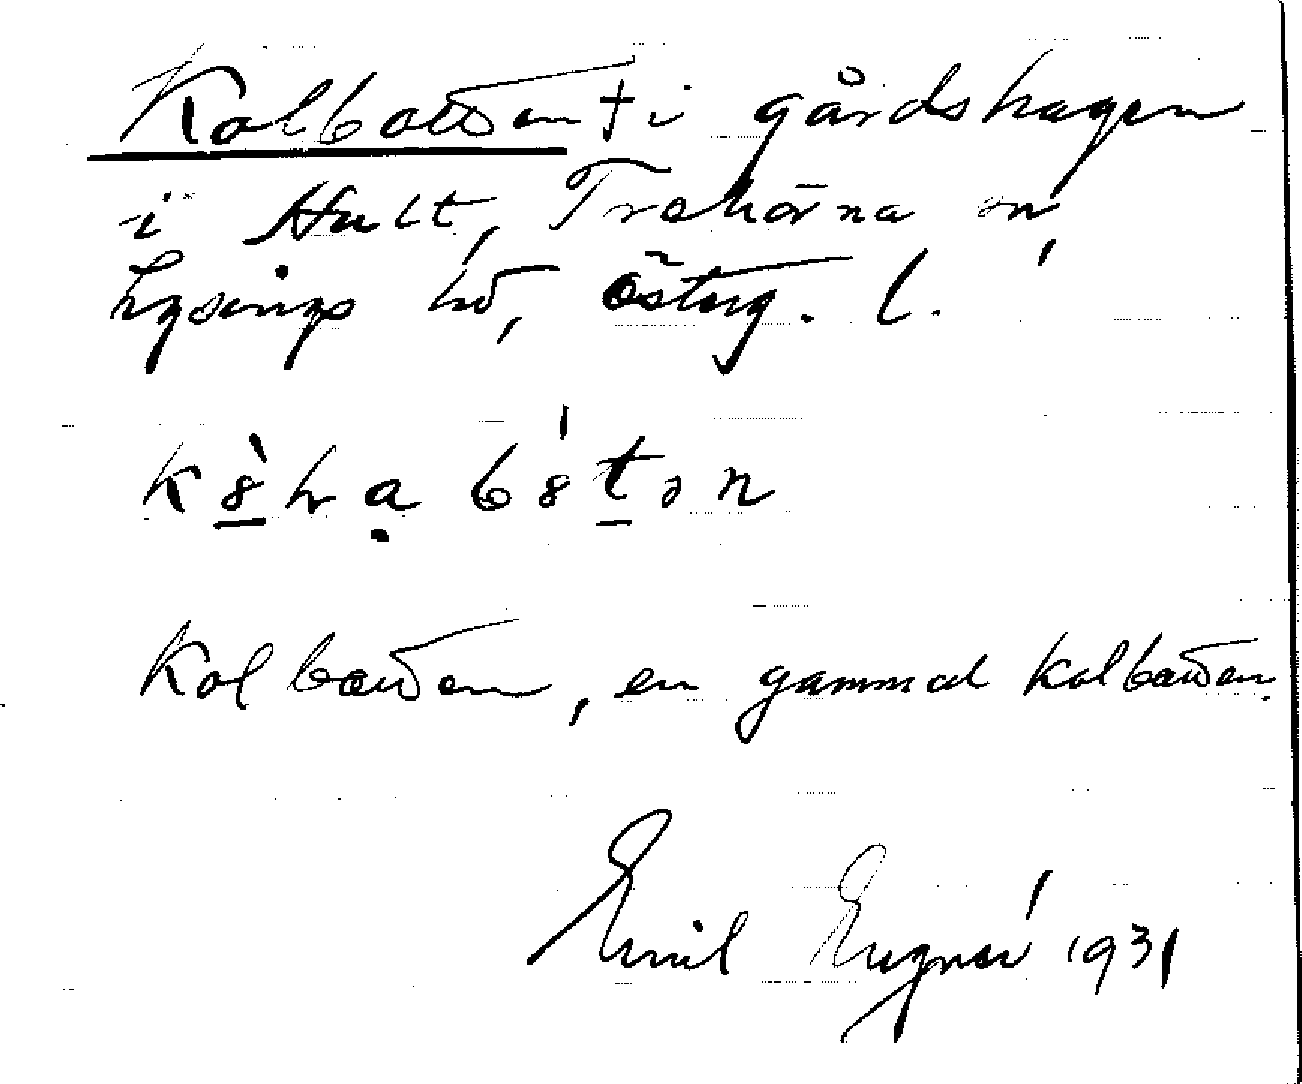 Kolbotten † i gårdshagen
i Hult, Trehörna sn,
Lysings hd, Östерg. l.
Kolbotten, en gammal kolbotten.
Emil 1931